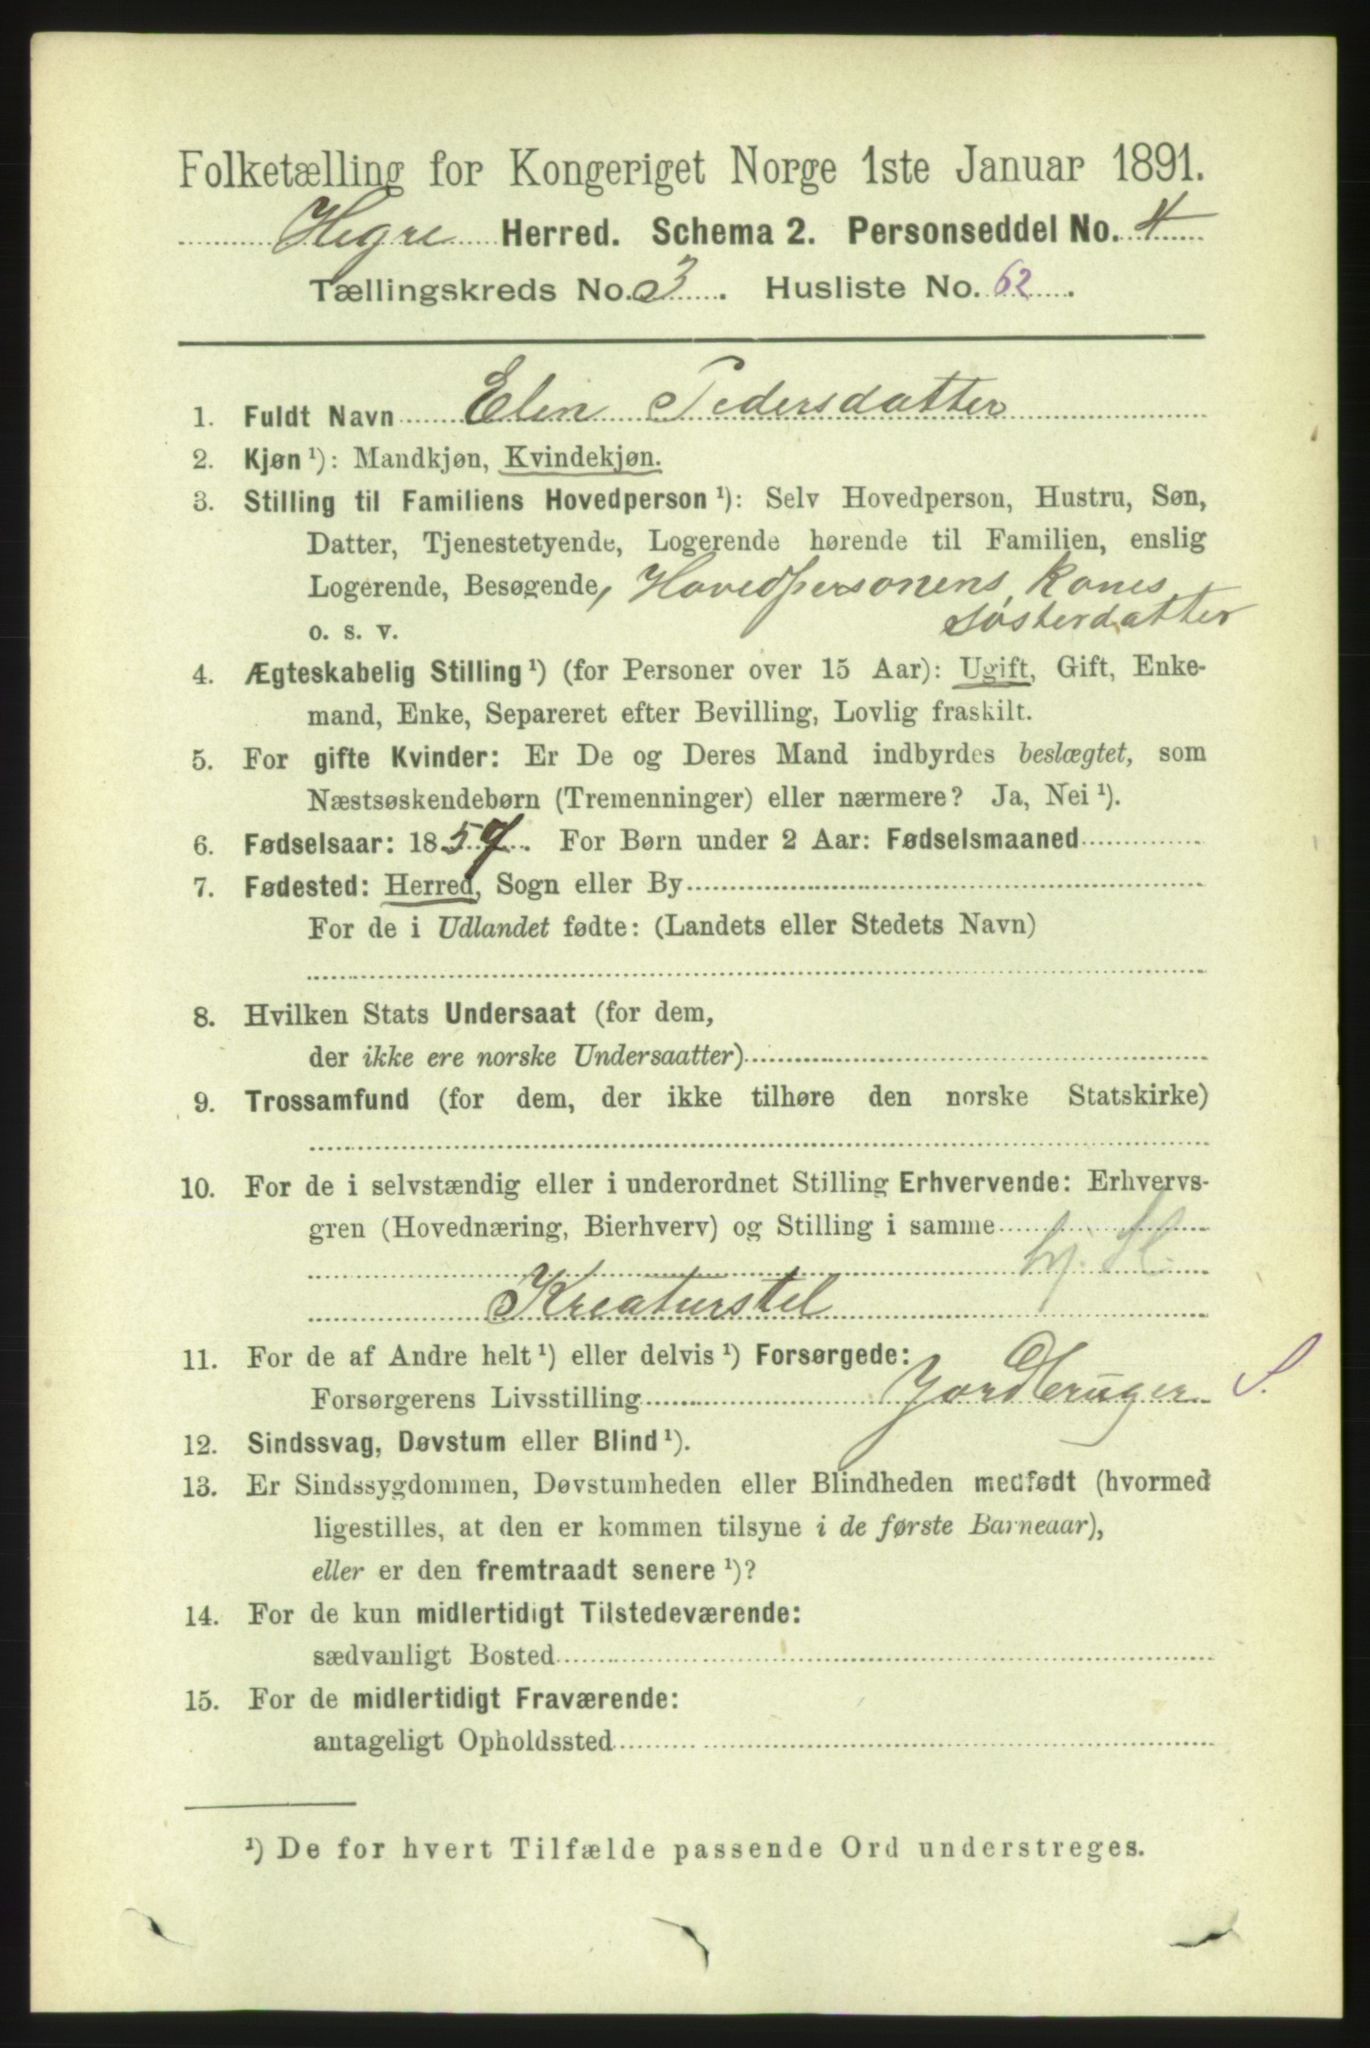 Folketælling for Kongeriget Norge 1ste Januar 1891.
Hegre Herred. Schema 2. Personseddel No. 4
Tællingskreds No. 3. Husliste No. 62.
1. Fuldt Navn Elin Pedersdatter
2. Kjøn ¹): Mandkjøn, Kvindekjøn.
3. Stilling til Familiens Hovedperson ¹): Selv Hovedperson, Hustru, Søn,
Datter, Tjenestetyende, Logerende hørende til Familien, enslig
Logerende, Besøgende, Hovedpersonens Kones
o. s. v. Søsterdatter
4. Ægteskabelig Stilling ¹) (for Personer over 15 Aar): Ugift, Gift, Enke-
mand, Enke, Separeret efter Bevilling, Lovlig fraskilt.
5. For gifte Kvinder: Er De og Deres Mand indbyrdes beslægtet, som
Næstsøskendebørn (Tremenninger) eller nærmere? Ja, Nei ¹).
6. Fødselsaar: 1857. For Børn under 2 Aar: Fødselsmaaned
7. Fødested: Herred, Sogn eller By
For de i Udlandet fødte: (Landets eller Stedets Navn)
8. Hvilken Stats Undersaat (for dem,
der ikke ere norske Undersaatter)
9. Trossamfund (for dem, der ikke tilhøre den norske Statskirke)
10. For de i selvstændig eller i underordnet Stilling Erhvervende: Erhvervs-
gren (Hovednæring, Bierhverv) og Stilling i samme
Kreaturstel
11. For de af Andre helt ¹) eller delvis ¹) Forsørgede:
Forsørgerens Livsstilling Jordbruger S.
12. Sindssvag, Døvstum eller Blind ¹).
13. Er Sindssygdommen, Døvstumheden eller Blindheden medfødt (hvormed
ligestilles, at den er kommen tilsyne i de første Barneaar),
eller er den fremtraadt senere ¹)?
14. For de kun midlertidigt Tilstedeværende:
sædvanligt Bosted
15. For de midlertidigt Fraværende:
antageligt Opholdssted
¹) De for hvert Tilfælde passende Ord understreges.